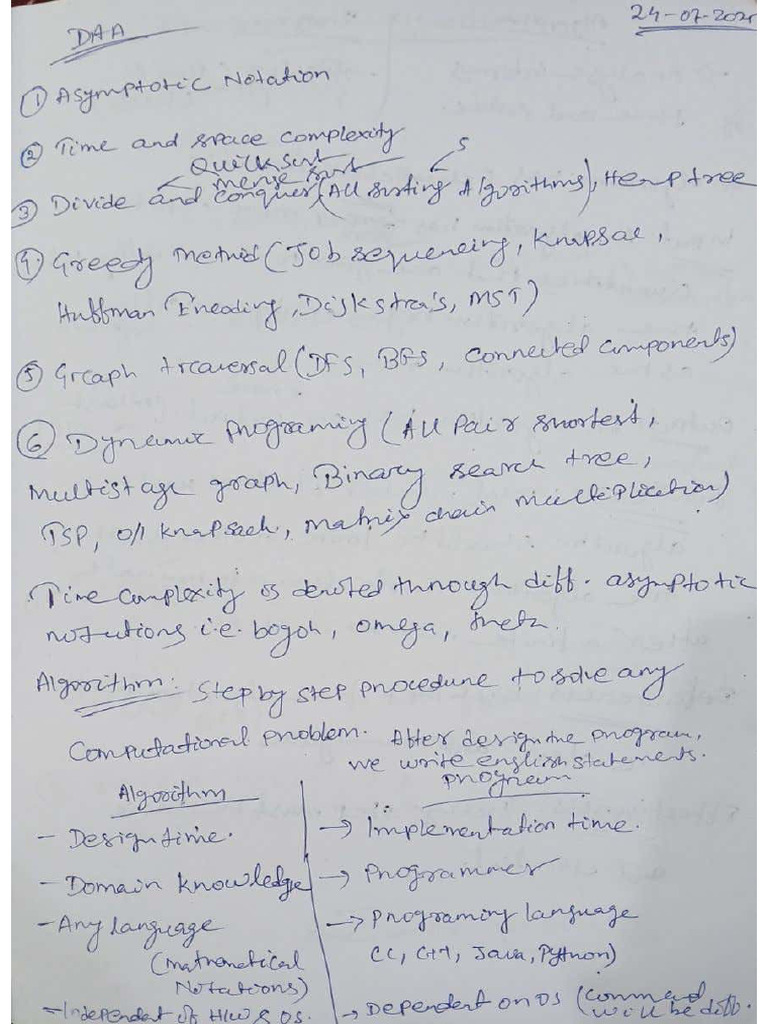 24-07-202
DAA
① Asymptotic Notation
② Time and space complexity
Quick sort
merge sort
5
③ Divide and conquer (All sorting Algorithms), Heap tree
④ Greedy method (Job sequencing, Knapsac,
Huffman Encoding, Dijkstra's, MST)
⑤ Graph traversal (DFS, BFS, connected components)
⑥ Dynamic programing (All pair shortest,
multistage graph, Binary search tree,
TSP, 0/1 knapsack, matrix chain multiplication)
Time complexity is denoted through diff. asymptotic
notations i.e. bogoh, omega, theta.
Algorithm: Step by step procedure to solve any
Computational problem. After design the program,
we write english statements.
Algorithm
program
- Design time.
→ Implementation time.
- Domain knowledge
→ Programmer
- Any language
→ Programing language
(Mathematical
CC, C++, Java, Python)
Notations)
- Independent of H/W & OS.
→ Dependent on OS (command
will be diff.